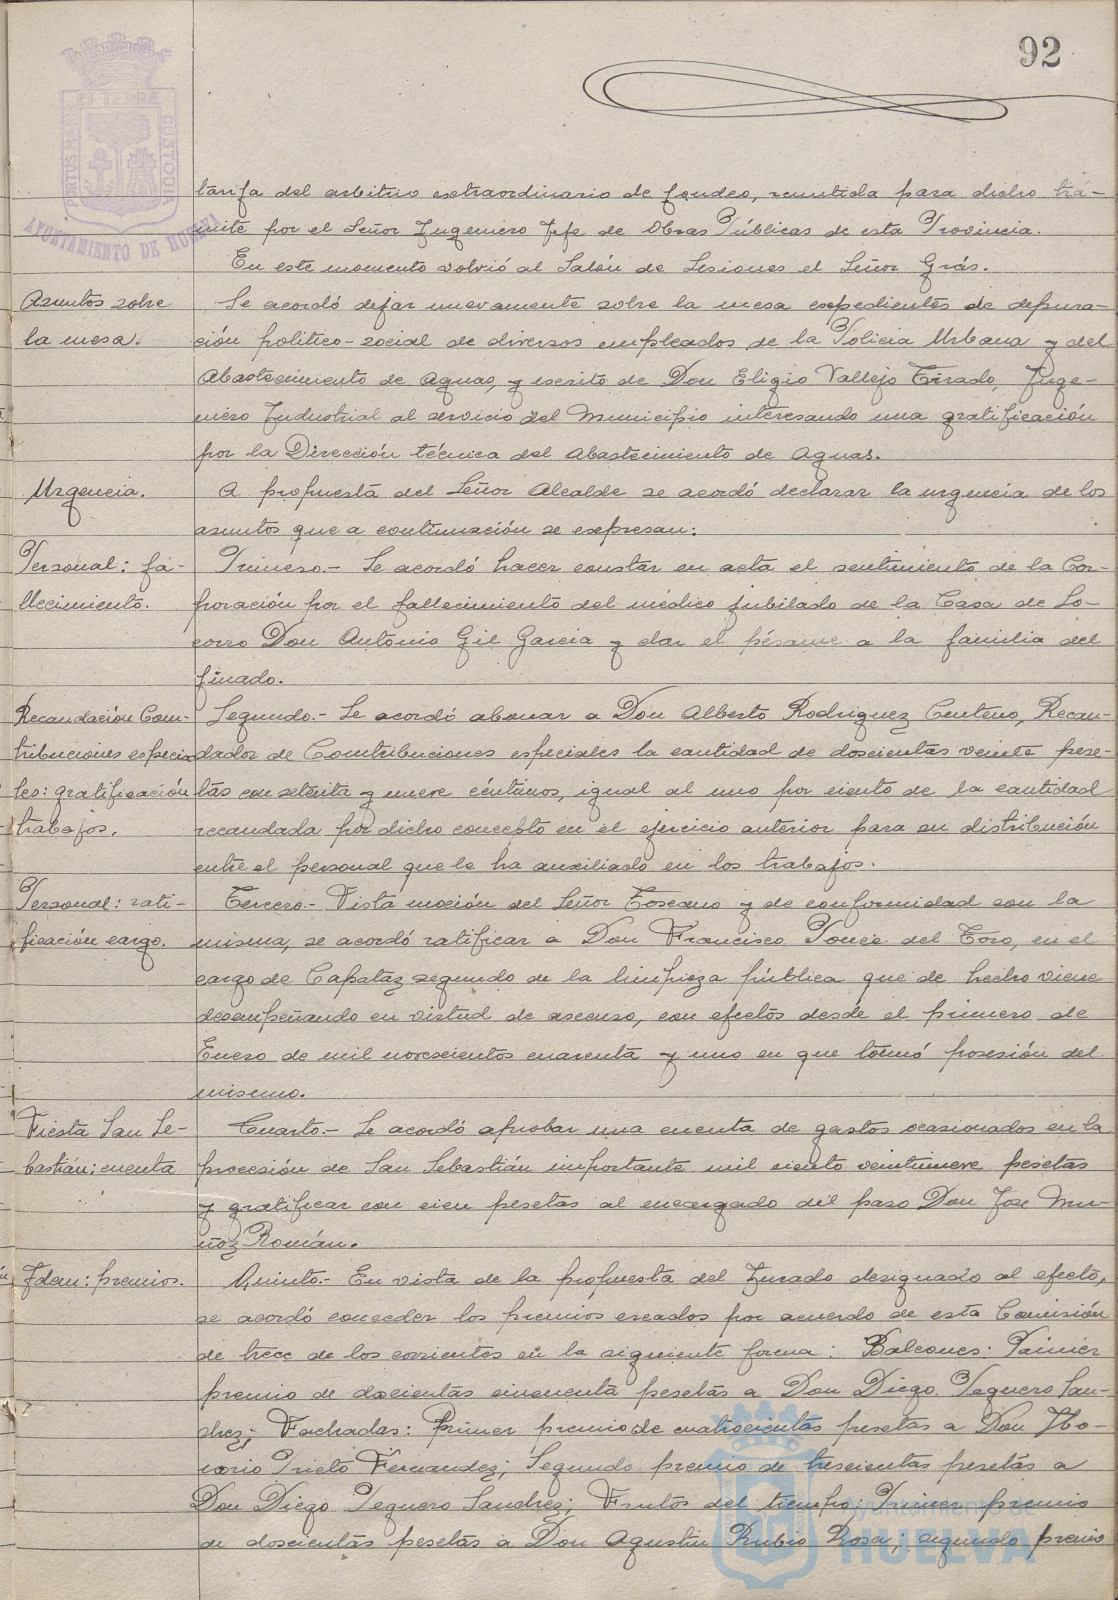 92
PORTUS MARIS ET TERRÆ CUSTODIA
AYUNTAMIENTO DE HUELVA
tarifa del arbitrio extraordinario de fondeo, remitida para dicho trá-
mite por el Señor Ingeniero Jefe de Obras Públicas de esta Provincia.
En este momento volvió al Salón de Sesiones el Señor Grás.
Asuntos sobre
la mesa.
Se acordó dejar nuevamente sobre la mesa expedientes de depura-
ción politico-social de diversos empleados de la Policia Urbana y del
Abastecimiento de Aguas, y escrito de Don Eligio Vallejo Tirado, Inge-
niero Industrial al servicio del Municipio interesando una gratificación
por la Dirección técnica del Abastecimiento de Aguas.
Urgencia.
A propuesta del Señor Alcalde se acordó declarar la urgencia de los
asuntos que a continuación se expresan:
Personal: fa-
llecimiento.
Primero.- Se acordó hacer constar en acta el sentimiento de la Cor-
poración por el fallecimiento del médico jubilado de la Casa de So-
corro Don Antonio Gil Garcia y dar el pésame a la familia del
finado.
Recaudación Con-
tribuciones especia-
les: gratificación
trabajos.
Segundo.- Se acordó abonar a Don Alberto Rodriguez Centeno, Recau-
dador de Contribuciones especiales la cantidad de doscientas veinte pese-
tas con setenta y nueve céntimos, igual al uno por ciento de la cantidad
recaudada por dicho concepto en el ejercicio anterior para su distribución
entre el personal que le ha auxiliado en los trabajos.
Personal: rati-
ficación cargo.
Tercero.- Vista moción del Señor Toscano y de conformidad con la
misma, se acordó ratificar a Don Francisco Ponce del Toro, en el
cargo de Capataz segundo de la limpieza pública que de hecho viene
desempeñando en virtud de ascenso, con efectos desde el primero de
Enero de mil novescientos cuarenta y uno en que tomó posesión del
mismo.
Fiesta San Se-
bastián: cuenta
Cuarto.- Se acordó aprobar una cuenta de gastos ocasionados en la
procesión de San Sebastián importante mil ciento veintinueve pesetas
y gratificar con cien pesetas al encargado del paso Don Jose Mu-
ñoz Román.
Idem: premios.
Quinto.- En vista de la propuesta del Jurado designado al efecto,
se acordó conceder los premios creados por acuerdo de esta Comisión
de trece de los corrientes en la siguiente forma: Balcones: Primer
premio de doscientas cincuenta pesetas a Don Diego Peguero San-
chez; Fachadas: Primer premio de cuatrocientas pesetas a Don Ho-
norio Prieto Fernandez; Segundo premio de trescientas pesetas a
Don Diego Peguero Sanchez; Frutos del tiempo: Primer premio
de doscientas pesetas a Don Agustin Rubio Rosa; segundo premio
Ayuntamiento de
HUELVA